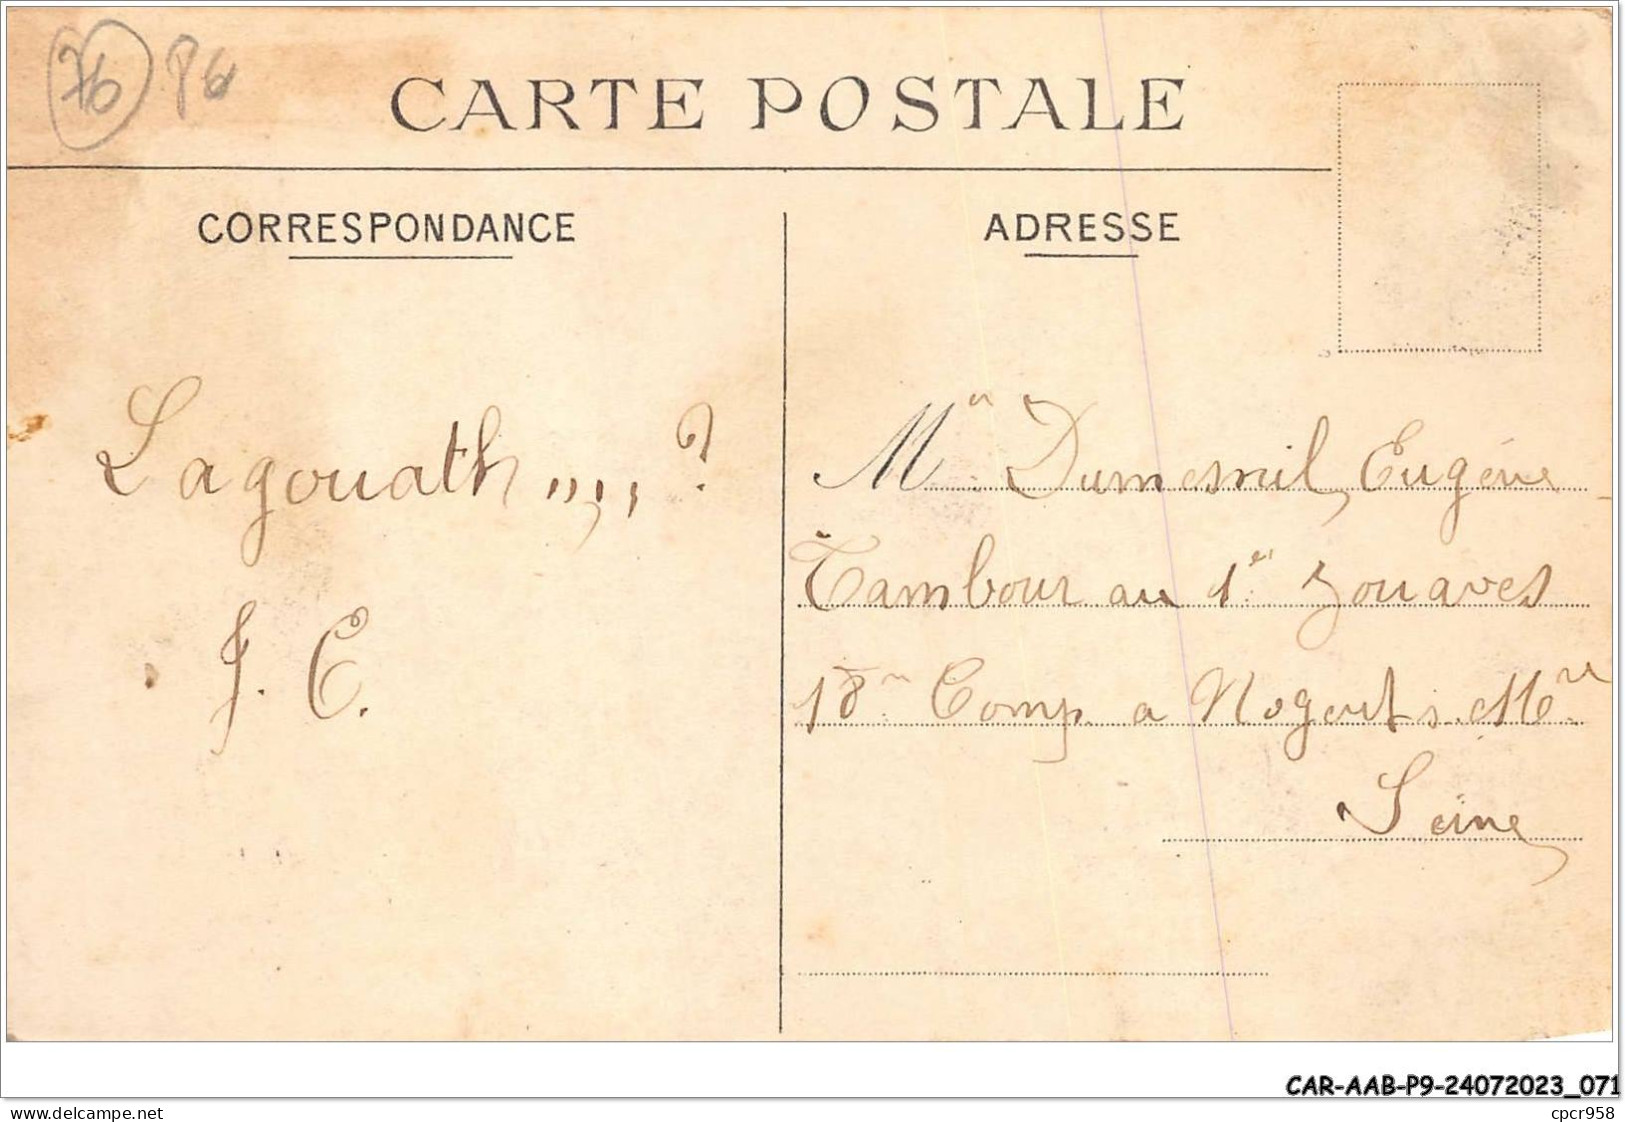 76 P6
CARTE POSTALE
CORRESPONDANCE
Lagouath ,,,,, ?
J. C.
ADRESSE
Mr Dumesnil Eugène
Tambour au 1er Zouaves
18me Comp a Nogent s. Mne
Seine
CAR-AAB-P9-24072023_071
www.delcampe.net
cpcr958